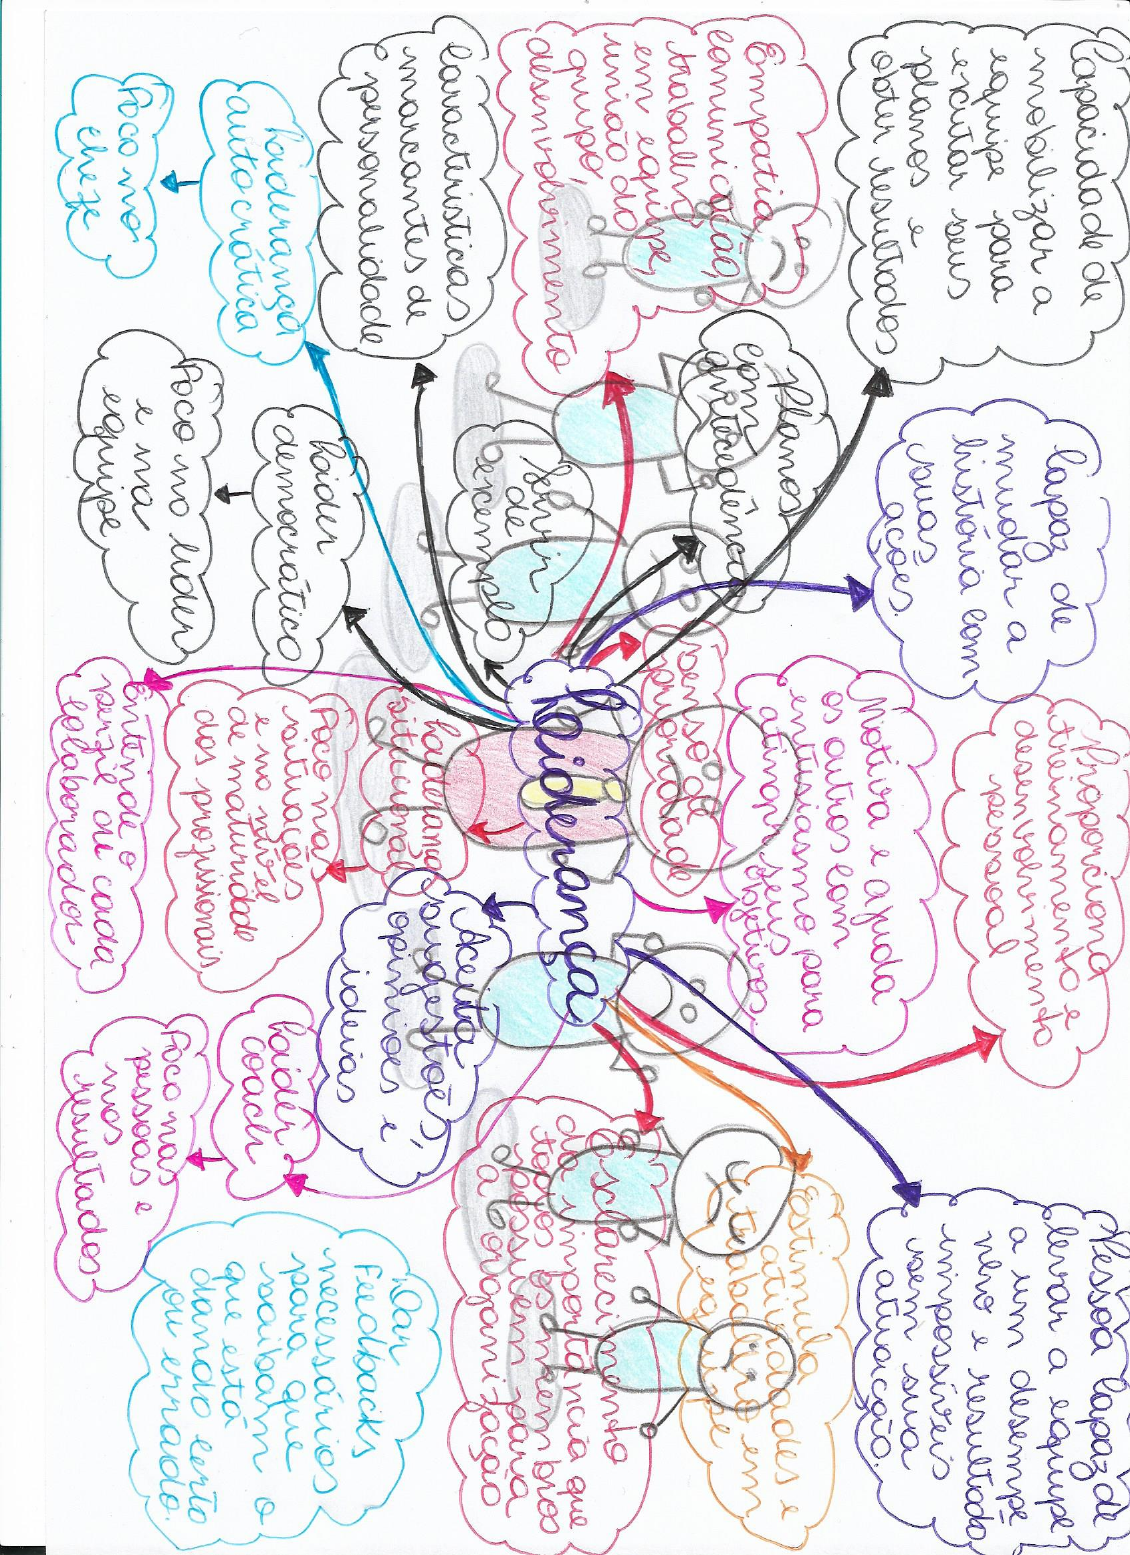 Capacidade de
mobilizar a
equipe para
excutar seus
planos e
obter resultados
Capaz de
mudar a
história com
suas ações.
Proporciona
treinamento e
desenvolvimento
pessoal
Pessoa capaz de
levar a equipe
a um desempe
nho e resultado
impossíveis
sem sua
atuação.
Empatia,
comunicação,
trabalho
em equipe
união do
grupo,
desenvolvimento
Planos
com
antecedência
senso de
prioridade
Motiva e ajuda
os outros com
entusiasmo para
atingir seus
objetivos.
Estimula
atividades e
trabalho em
equipe
Características
marcantes de
personalidade
Servir
de
exemplo
Liderança
Aceita
sugestões
opiniões e
ideias
Esclarecimento
da importância que
todos os membros
possuem para
a organização
Liderança
autocrática
Foco no
chefe
Lider
democrático
Foco no lider
e na
equipe
Liderança
situacional
Foco na
situações
e no nível
de maturidade
dos profissionais
Entende o
perfil de cada
colaborador
Lider
coach
Foco nas
pessoas e
nos
resultados
Dar
Feedbacks
necessários
para que
saibam o
que está
dando certo
ou errado.